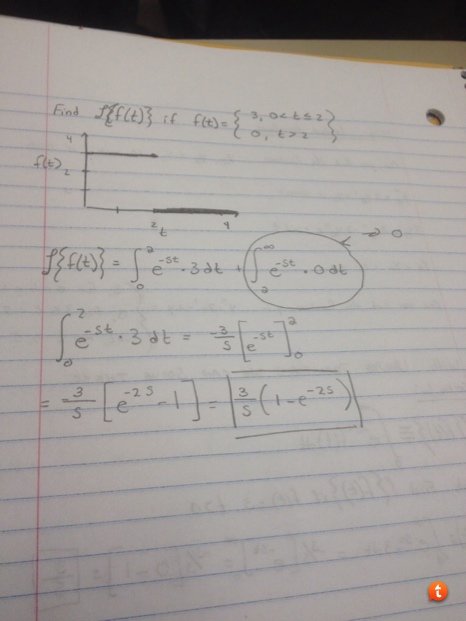 Find ℒ{f(t)} if f(t) = { 3, 0 < t ≤ 2
0, t > 2 }
4
f(t) 2
2 4
t
ℒ{f(t)} = ∫₀² e^{-st} · 3 dt + ∫₂^∞ e^{-st} · 0 dt → 0
∫₀² e^{-st} · 3 dt = -3/s [e^{-st}]₀²
= -3/s [e^{-2s} - 1] = 3/s (1 - e^{-2s})
t